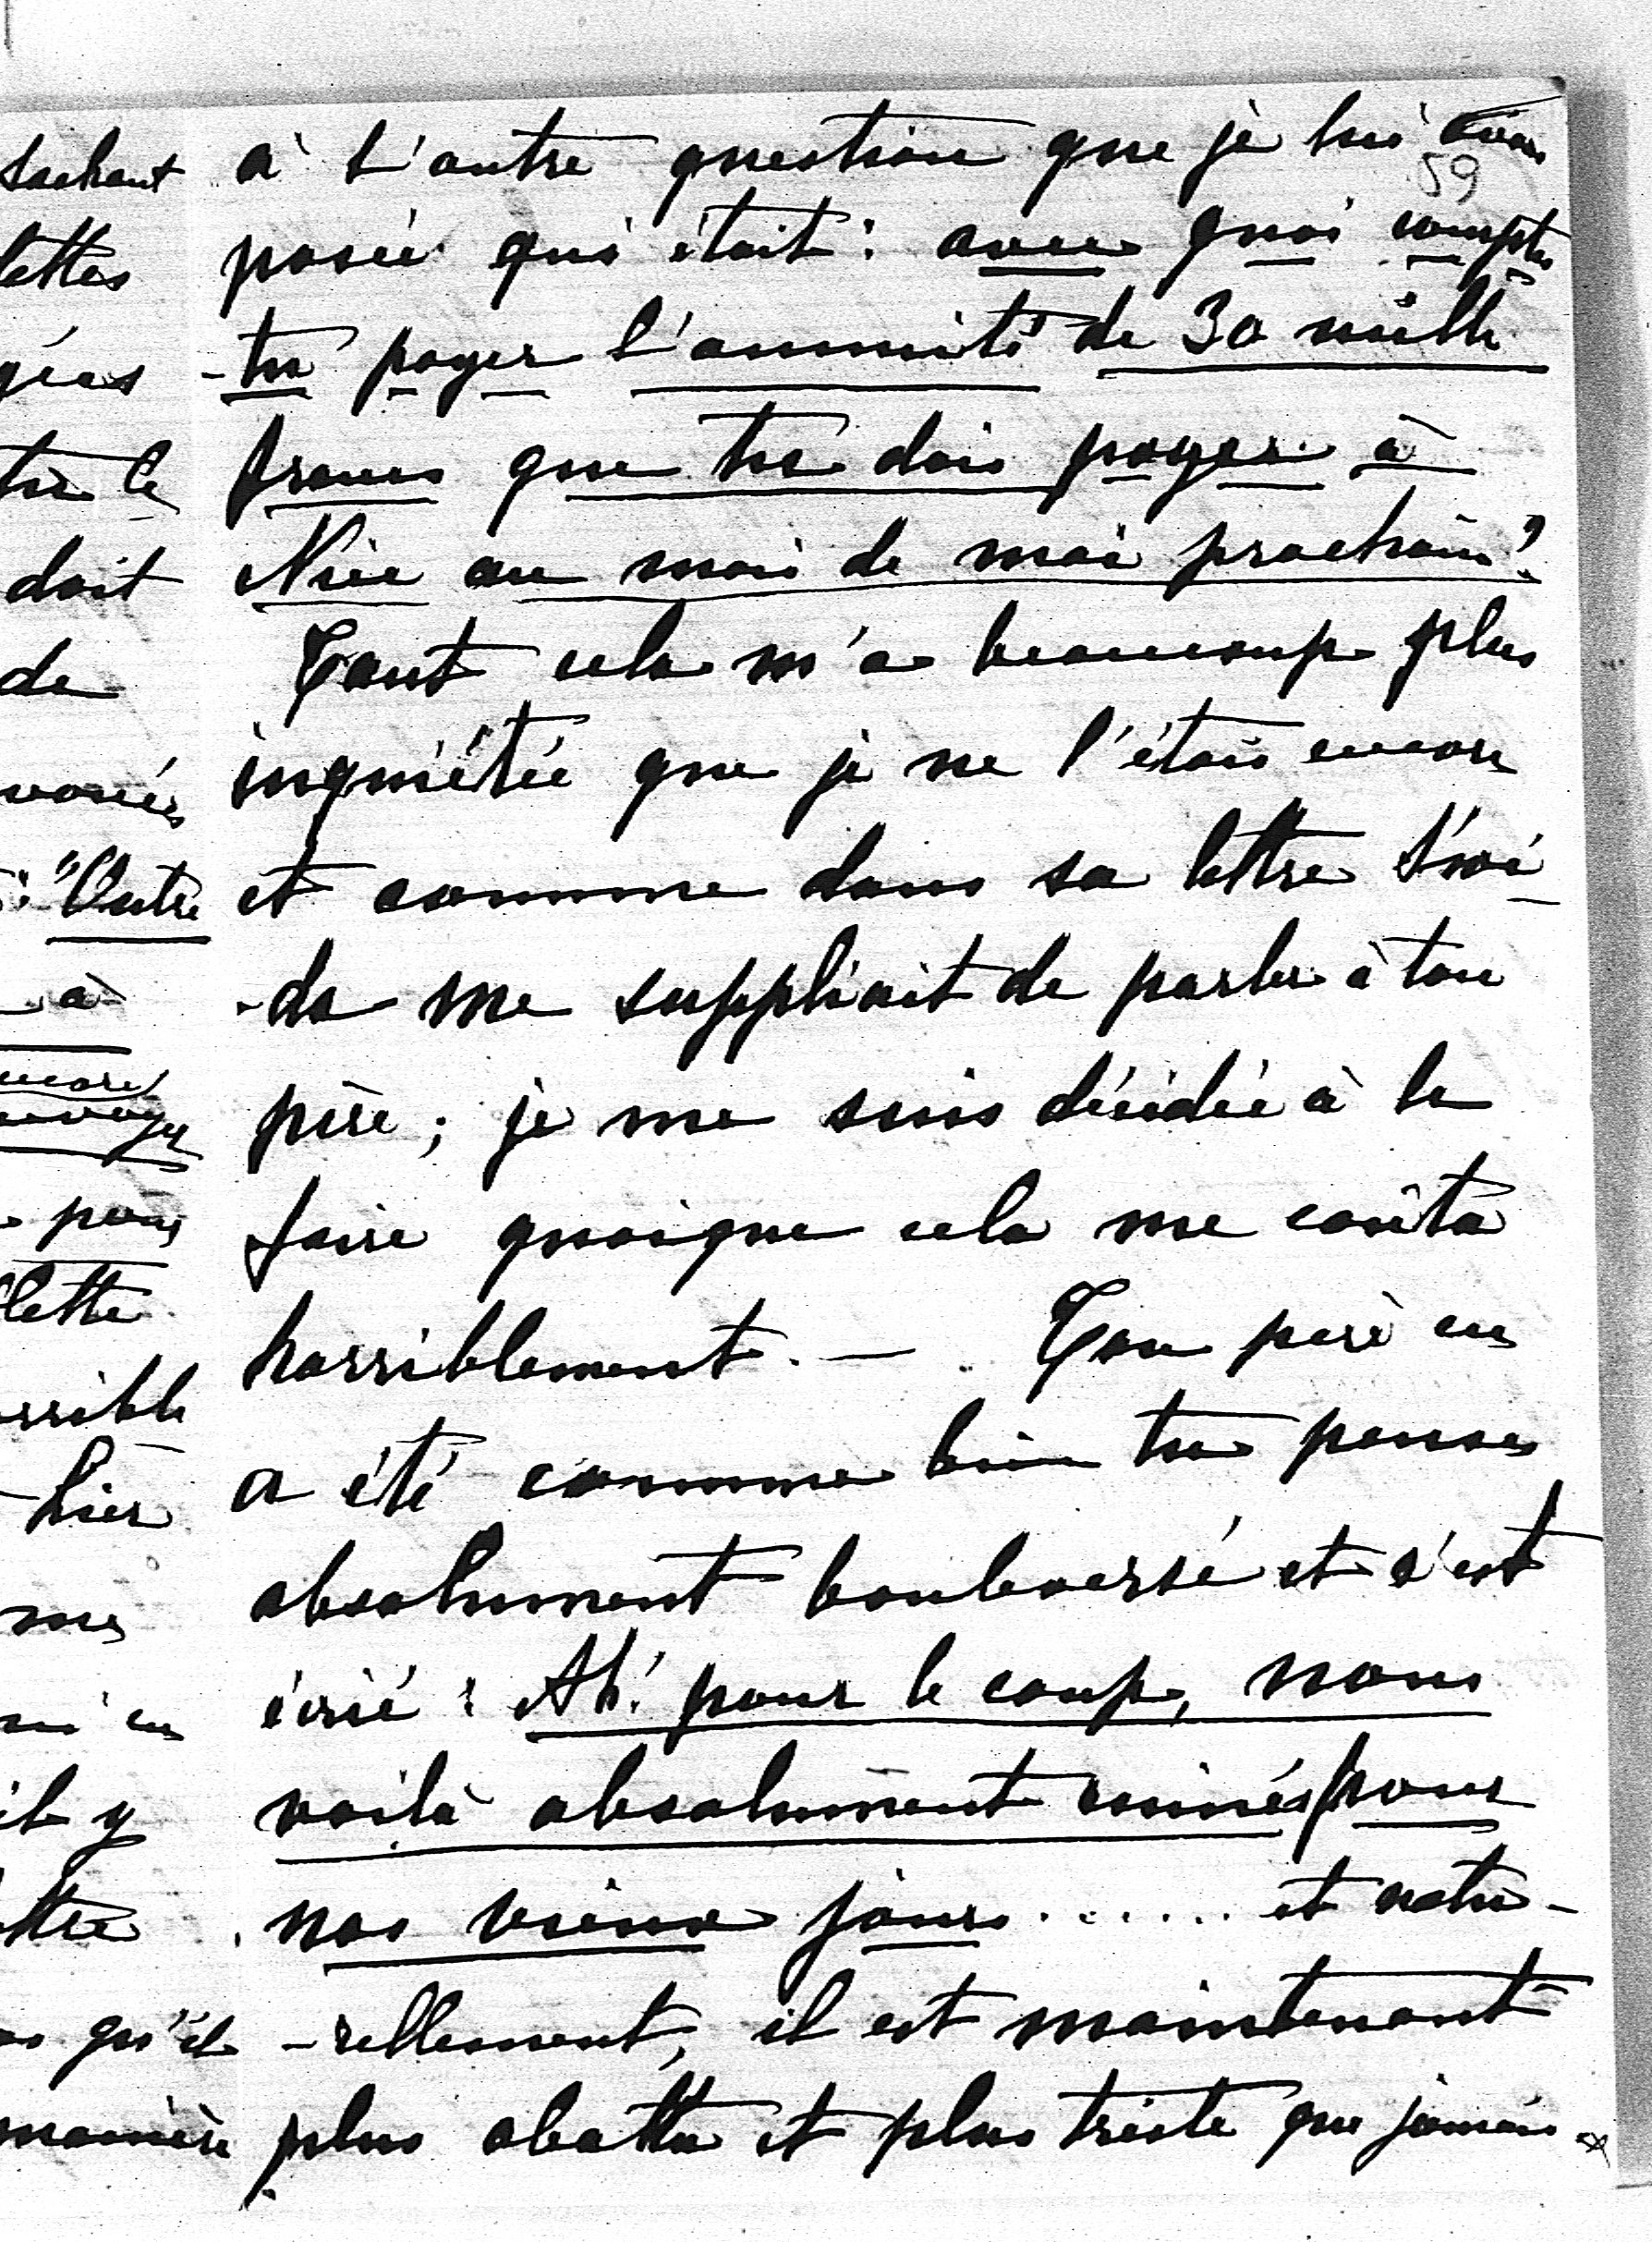 à l'autre question que je lui avais
59
posée qui était : avec quoi comptes
-tu payer l'annuité de 30 mille
francs que tu dois payer à
Nice au mois de mai prochain?
Tout cela m'a beaucoup plus
inquiétée que je ne l'étais encore
et comme dans sa lettre
-da me suppliait de parler à ton
père ; je me suis décidée à le
faire quoique cela me coûta
horriblement. — Ton père en
a été comme bien tu penses
absolument bouleversé et s'est
écrié : Ah! pour le coup, nous
voilà absolument ruinés pour
nos vieux jours ...... et natu-
-rellement, il est maintenant
plus abattu et plus triste que jamais
sachant
lettes
doit
de
"Outre
à
encore
pour
lette
hier
mes
il y
qu'il
manière